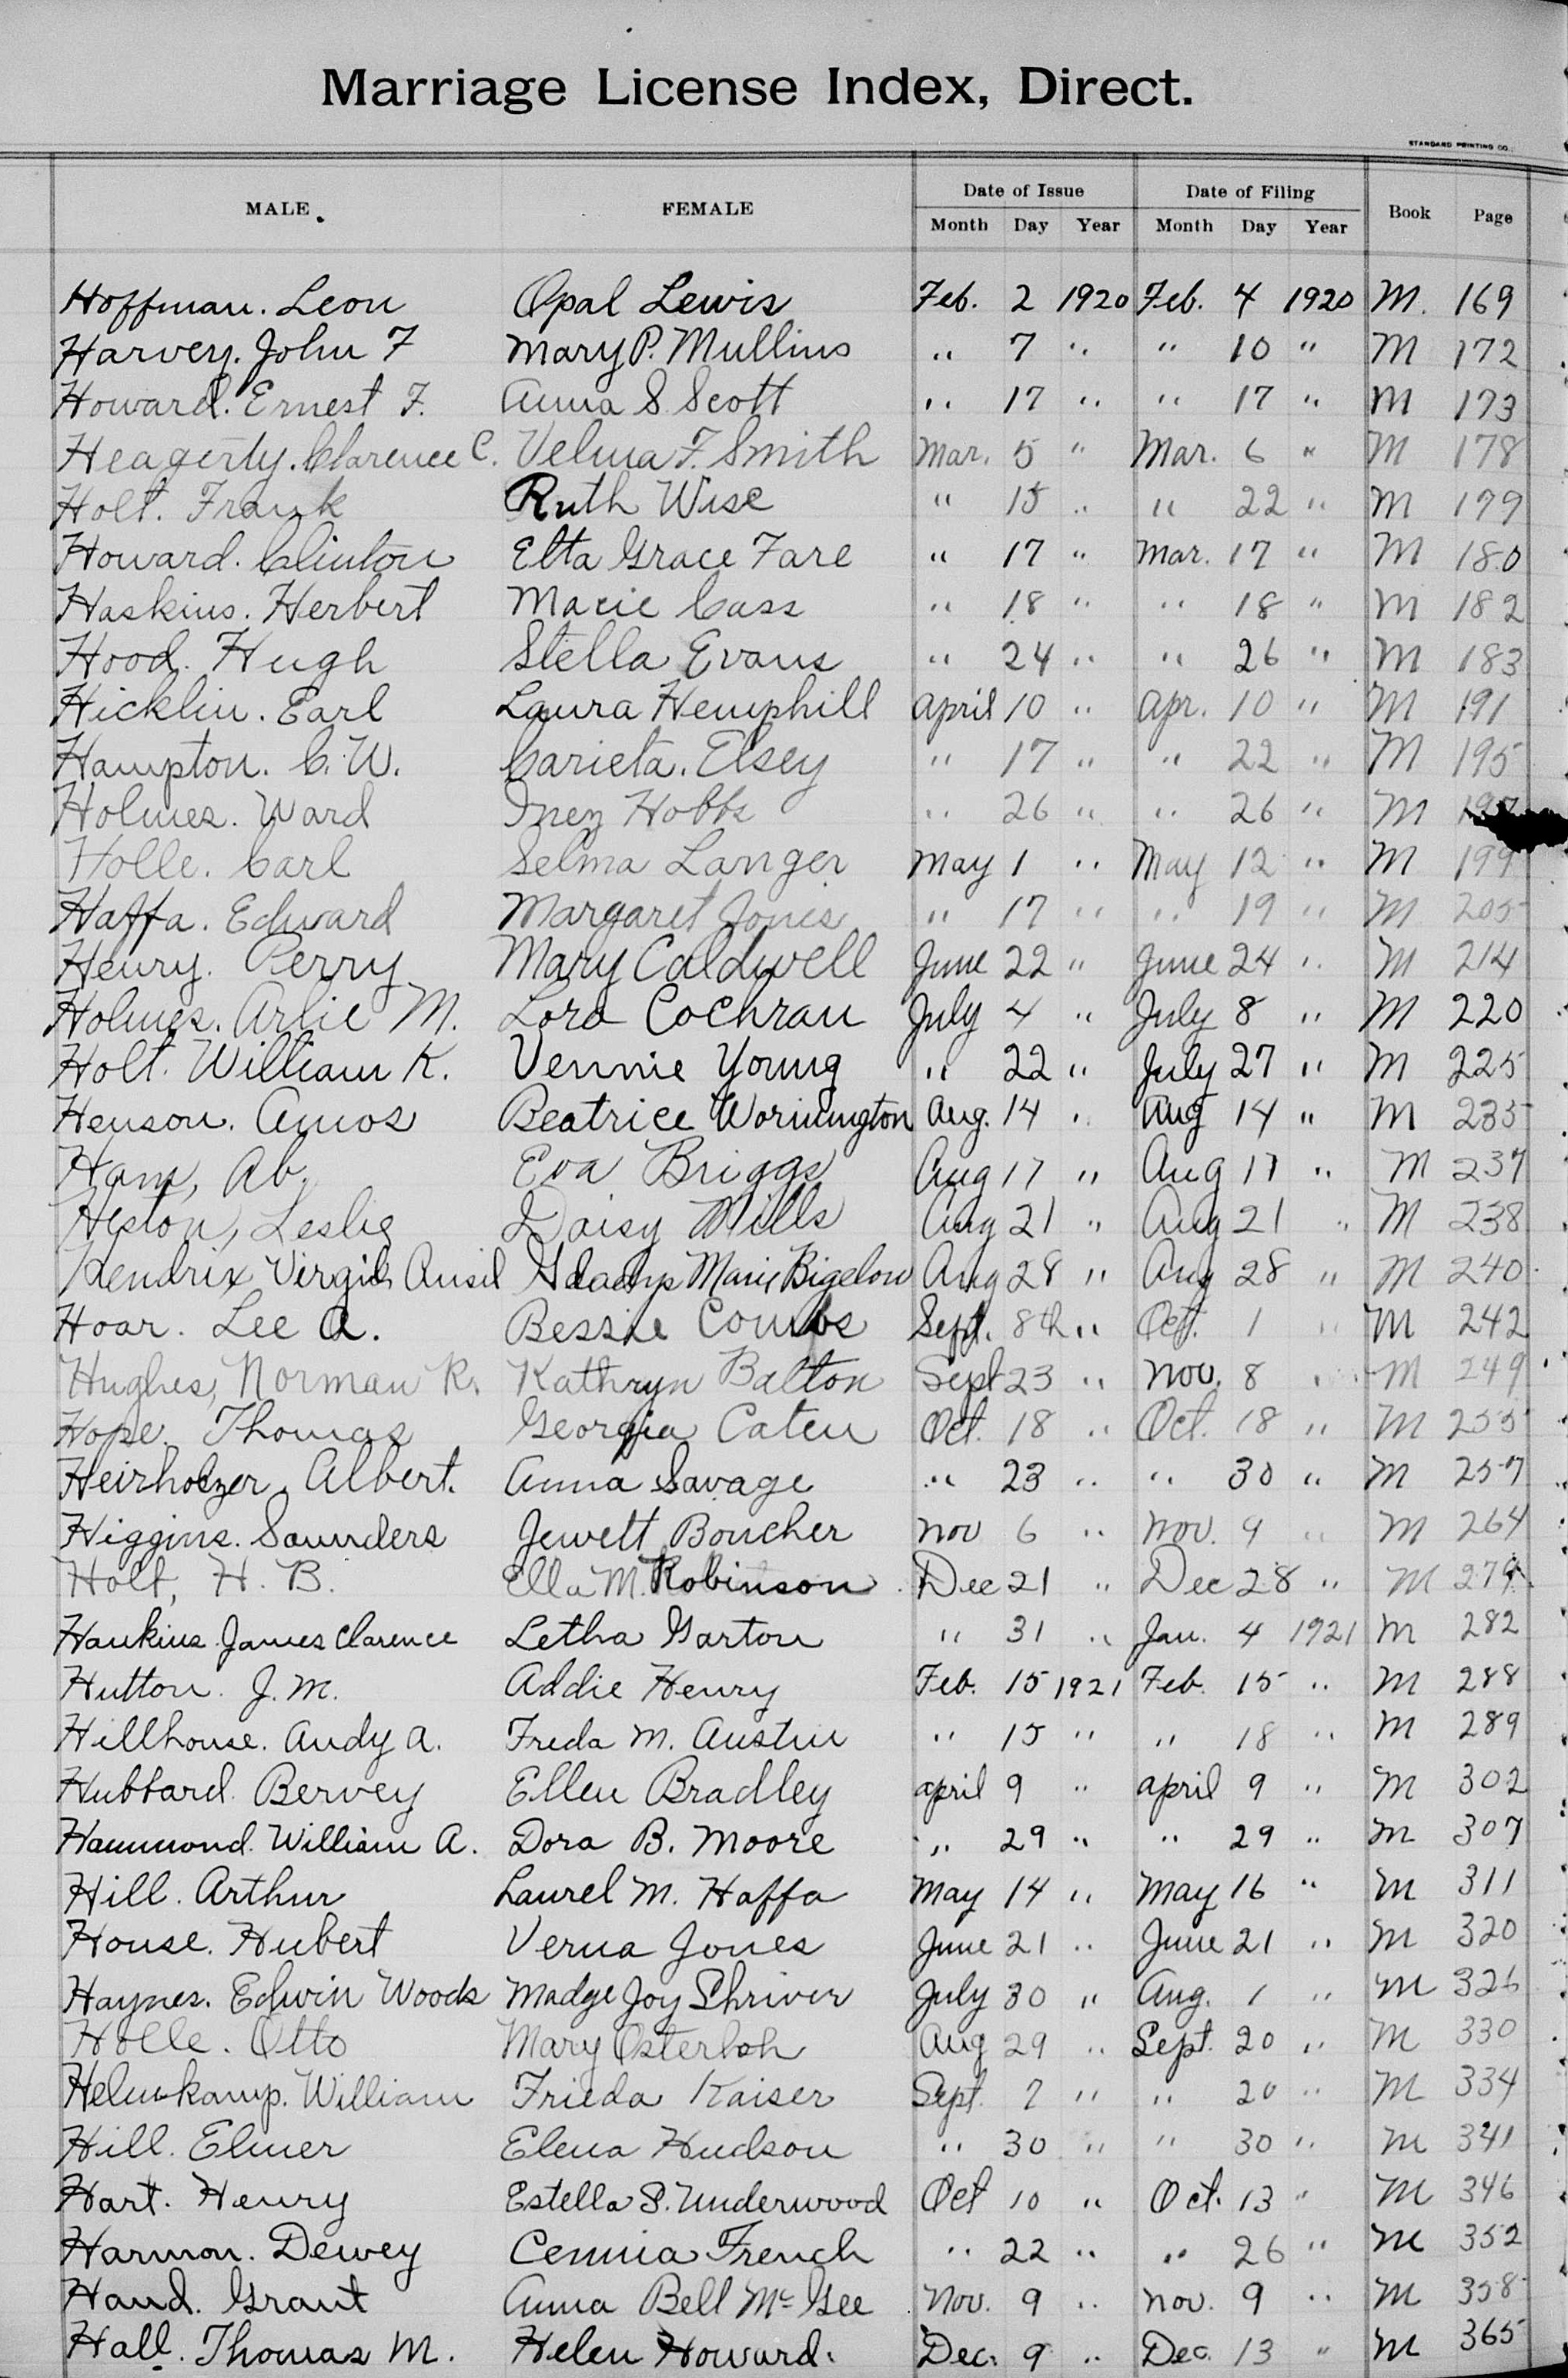 Marriage License Index, Direct.
STANDARD PRINTING CO.
MALE FEMALE Date of Issue Date of Filing Book Page
Month Day Year Month Day Year
Hoffman. Leon Opal Lewis Feb. 2 1920 Feb. 4 1920 M. 169
Harvey. John F Mary P. Mullins " 7 " " 10 " M 172
Howard. Ernest F. Anna S. Scott " 17 " " 17 " M 173
Heagerty. Clarence C. Velma F. Smith Mar. 5 " Mar. 6 " M 178
Holt. Frank Ruth Wise " 15 " " 22 " M 179
Howard. Clinton Elta Grace Fare " 17 " Mar. 17 " M 180
Haskins. Herbert Marie Cass " 18 " " 18 " M 182
Hood. Hugh Stella Evans " 24 " " 26 " M 183
Hicklin. Earl Laura Hemphill April 10 " Apr. 10 " M 191
Hampton. C. W. Carieta. Elsey " 17 " " 22 " M 195
Holmes. Ward Inez Hobbs " 26 " " 26 " M
Holle. Carl Selma Langer May 1 " May 12 " M 199
Haffa. Edward Margaret Jones " 17 " " 19 " M 205
Henry. Perry Mary Caldwell June 22 " June 24 " M 214
Holmes. Arlie M. Lora Cochran July 4 " July 8 " M 220
Holt. William K. Vennie Young " 22 " July 27 " M 225
Henson. Amos Beatrice Wornington Aug. 14 " Aug 14 " M 235
Ham, Ab. Eva Briggs Aug 17 " Aug 17 " M 237
Heston, Leslie Daisy Mills Aug 21 " Aug 21 " M 238
Hendrix Virgil Ansil Gladys Marie Bigelow Aug 28 " Aug 28 " M 240
Hoar. Lee A. Bessie Combs Sept. 8th " Oct. 1 " M 242
Hughes, Norman R. Kathryn Balton Sept 23 " Nov. 8 " M 249
Hope. Thomas Georgia Caten Oct. 18 " Oct. 18 " M 255
Heirholzer. Albert. Anna Savage " 23 " " 30 " M 257
Higgins. Saunders Jewett Boucher Nov 6 " Nov. 9 " M 264
Holt, H. B. Ella M. Robinson Dec 21 " Dec 28 " M 279
Hankins. James Clarence Letha Garton " 31 " Jan. 4 1921 M 282
Hutton. J. M. Addie Henry Feb. 15 1921 Feb. 15 " M 288
Hillhouse. Andy A. Freda M. Austin " 15 " " 18 " M 289
Hubbard. Bervey Ellen Bradley April 9 " April 9 " M 302
Hammond. William A. Dora B. Moore " 29 " " 29 " M 307
Hill. Arthur Laurel M. Haffa May 14 " May 16 " M 311
House. Hubert Verna Jones June 21 " June 21 " M 320
Haynes. Edwin Woods Madge Joy Shriver July 30 " Aug. 1 " M 326
Holle. Otto Mary Osterloh Aug 29 " Sept. 20 " M 330
Helmkamp. William Frieda Kaiser Sept. 7 " " 20 " M 334
Hill. Elmer Elena Hudson " 30 " " 30 " M 341
Hart. Henry Estella S. Underwood Oct 10 " Oct. 13 " M 346
Harmon. Dewey Cennia French " 22 " " 26 " M 352
Hand. Grant Anna Bell McGee Nov. 9 " Nov. 9 " M 358
Hall. Thomas M. Helen Howard. Dec. 9 " Dec. 13 " M 365